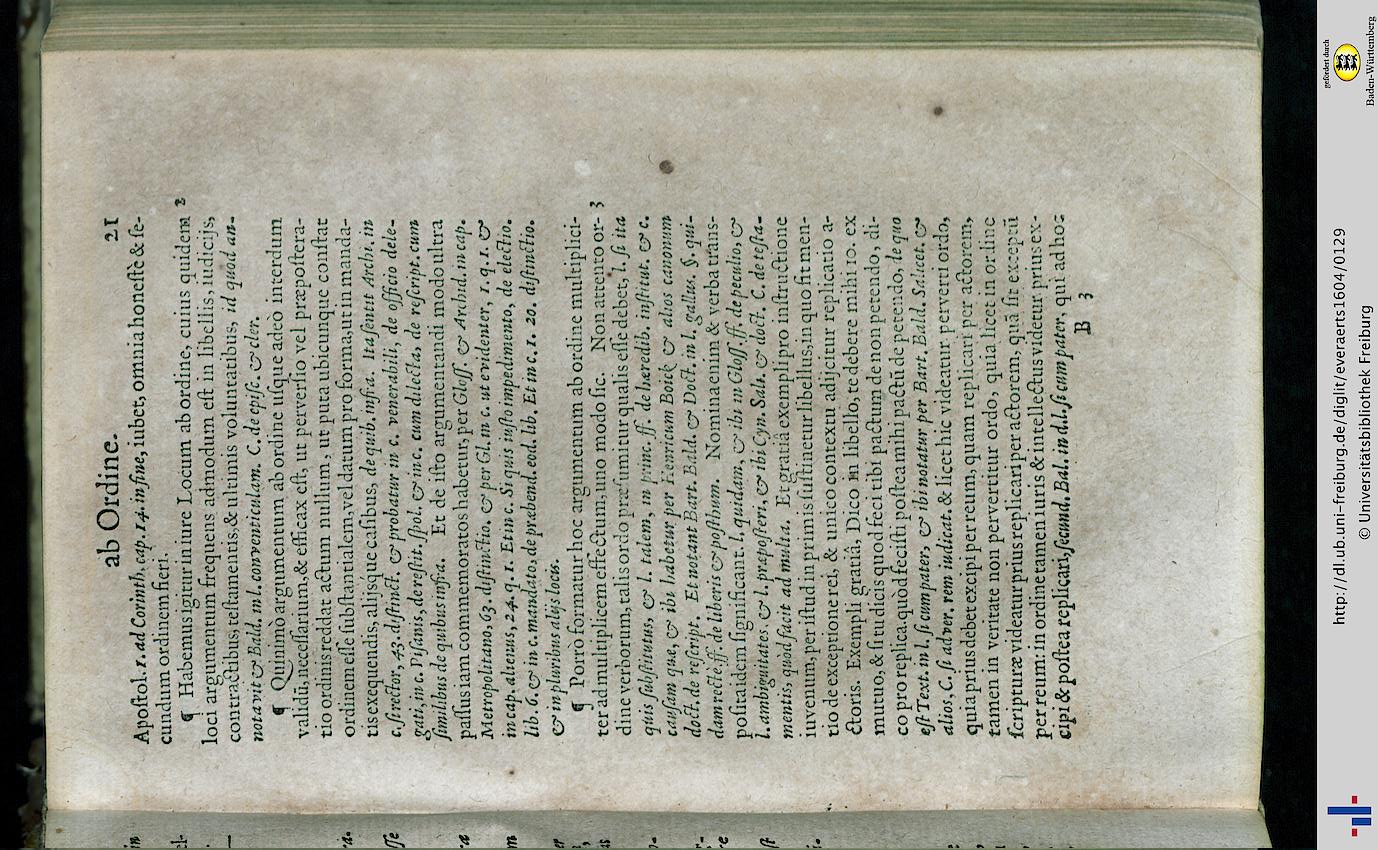 ab Ordine. 21
Apoſtol. 1. ad Corinth. cap. 14. in fine, iubet, omnia honeſtè & ſe-
cundum ordinem fieri.
¶ Habemus igitur in iure Locum ab ordine, cuius quidem 2
loci argumentum frequens admodum eſt in libellis, iudicijs,
contractibus, teſtamentis, & ultimis voluntatibus, id quod an-
notavit & Bald. in l. conventiculam. C. de epiſc. & cler.
¶ Quinimò argumentum ab ordine uſque adeò interdum
validũ, neceſſarium, & efficax eſt, ut perverſio vel præpoſtera-
tio ordinis reddat actum nullum, ut puta ubicunque conſtat
ordinem eſſe ſubſtantialem, vel datum pro forma, ut in manda-
tis exequendis, aliisque caſibus, de quib. infra. Ita ſentit Archi. in
c. ſi rector, 43. diſtinct. & probatur in c. venerabili, de officio dele-
gati, in c. Piſanis, de reſtit. ſpol. & in c. cum dilecta, de reſcript. cum
ſimilibus de quibus infra. Et de iſto argumentandi modo ultra
paſſus iam commemoratos habetur, per Gloſſ. & Archid. in cap.
Metropolitano. 63. diſtinctio. & per Gl. in c. ut evidenter, 1. q. 1. &
in cap. alienus, 24. q. 1. Et in c. Si quis iuſto impedimento, de electio.
lib. 6. & in c. mandato, de præbend. eod. lib. Et in c. 1. 20. diſtinctio.
& in pluribus alijs locis.
¶ Porrò formatur hoc argumentum ab ordine multiplici-
ter ad multiplicem effectum, uno modo ſic. Non attento or- 3
dine verborum, talis ordo præſumitur qualis eſſe debet, l. ſi ita
quis ſubſtitutus, & l. talem, in princ. ff. de hæredib. inſtitut. & c.
cauſam quæ, & ibi habetur per Henricum Boick & alios canonum
doct. de reſcript. Et notant Bart. Bald. & Doct. in l. gallus. §. qui-
dam rectè. ff. de liberis & poſthum. Nomina enim & verba trans-
poſita idem ſignificant. l. quidam. & ibi in Gloſſ. ff. de peculio, &
l. ambiguitates & l. præpoſteri. & ibi Cyn. Sali. & doct. C. de teſta-
mentis, quod facit ad multa. Et gratiâ exempli pro inſtructione
iuvenum, per iſtud in primis ſuſtinetur libellus, in quo fit men-
tio de exceptione rei, & unico contextu adijcitur replicatio a-
ctoris. Exempli gratiâ, Dico in libello, te debere mihi 10. ex
mutuo, & ſi tu dicis quod feci tibi pactum de non petendo, di-
co pro replica, quòd feciſti poſtea mihi pactũ de petendo, de quo
eſt Text. in l. ſi cum pater, & ibi notatur per Bart. Bald. Salicet. &
alios, C. ſi adver. rem iudicat. & licet hic videatur perverti ordo,
quia prius debet excipi per reum, quam replicari per actorem,
tamen in veritate non pervertitur ordo, quia licet in ordine
ſcripturæ videatur prius replicari per actorem, quã ſit exceptũ
per reum: in ordine tamen iuris & intellectus videtur prius ex-
cipi & poſtea replicari, ſecund. Bal. in d. l. ſi cum pater, qui ad hoc
B 3
gefördert durch
Baden-Württemberg
http://dl.ub.uni-freiburg.de/diglit/everaerts1604/0129
© Universitätsbibliothek Freiburg